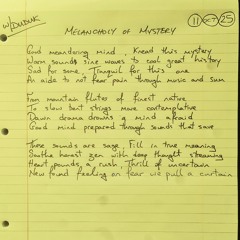 w/DUDUK
11 OCT 25
MELANCHOLY OF MYSTERY
Good meandering mind. Knead this mystery
Warm sounds sine waves to cool great history
Sad for some, Tranquil for this one
An aide to not fear pain through music and sun
From mountain flutes of finest nature
A slow but strings more contemplative
Dawn drama drowns a mind afraid
Good mind prepared through sounds that save
These sounds are sage. Fill in true meaning
Soothe honest zen with deep thought steaming
Heart pounds, a rush, Thrill of uncertain
New found feeling on fear we pull a curtain